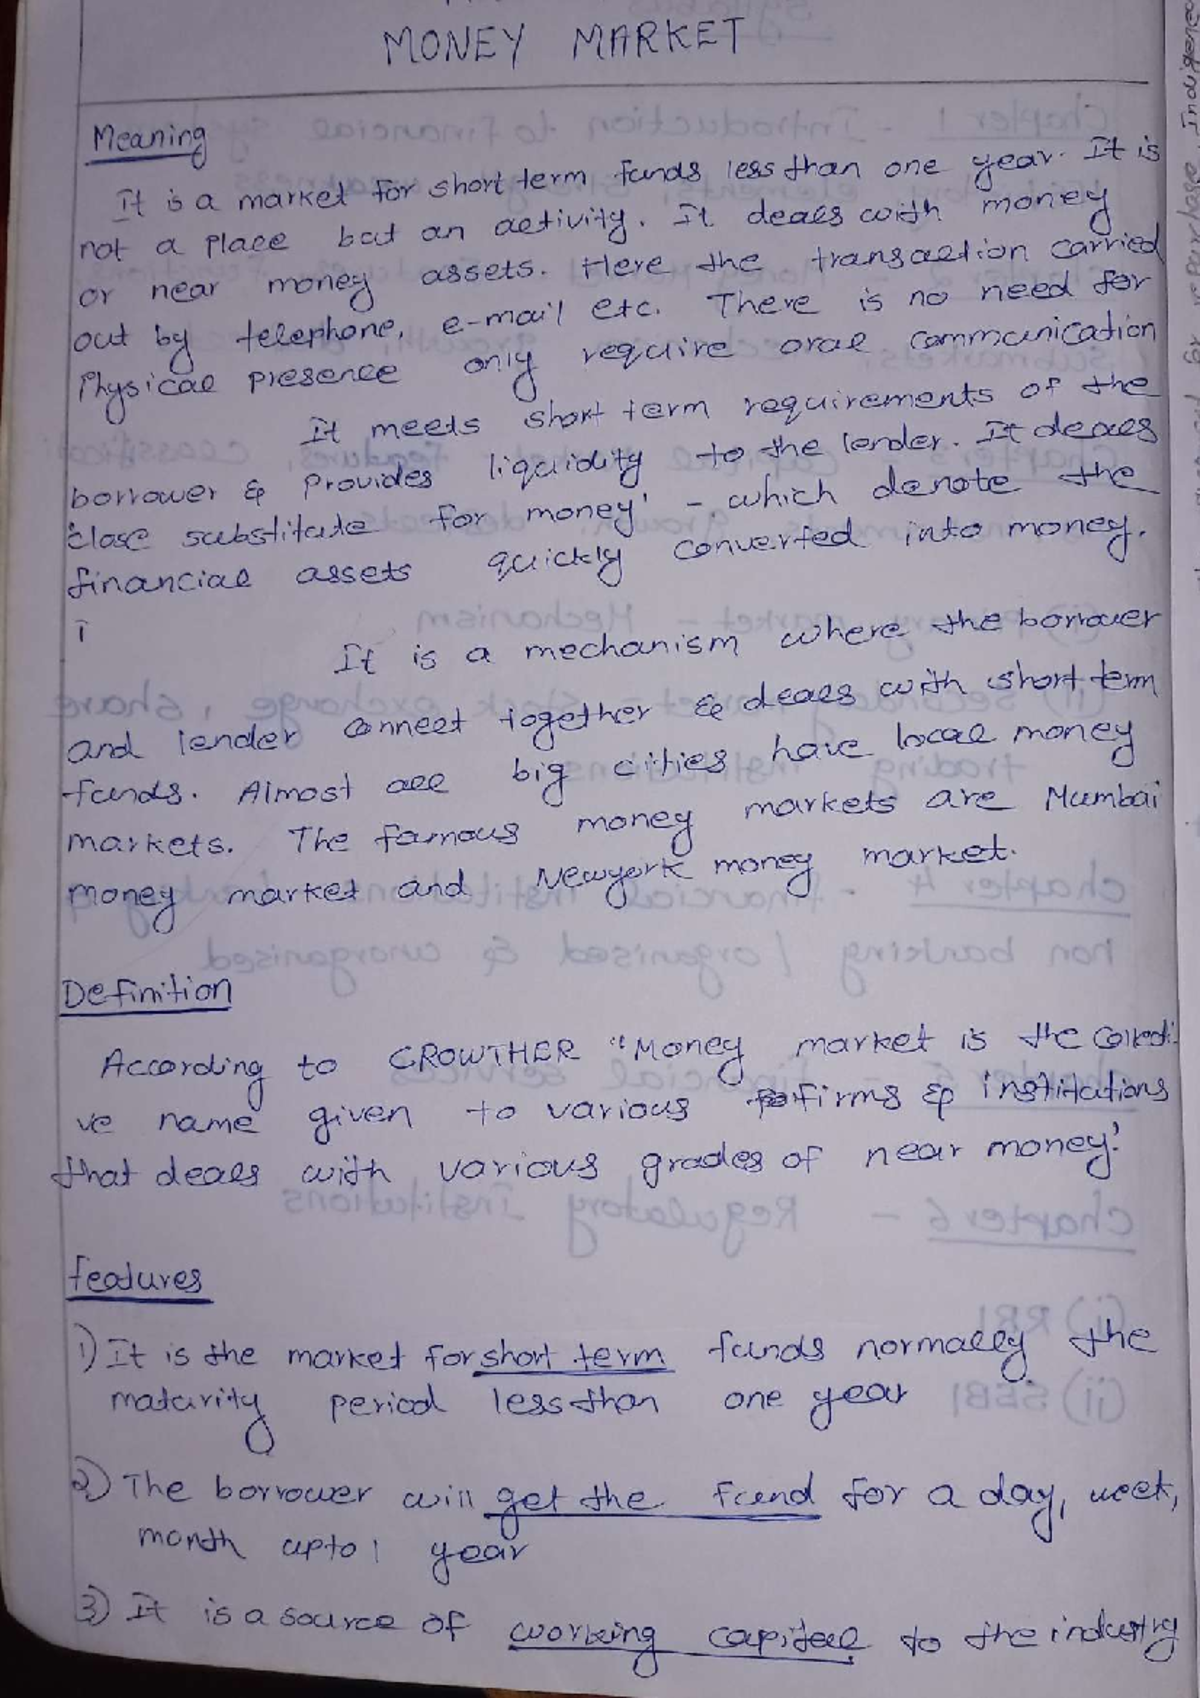 MONEY MARKET
Meaning
It is a market for short term funds less than one year. It is
not a place but an activity. It deals with money
or near money assets. Here the transaction carried
out by telephone, e-mail etc. There is no need for
Physical presence only require oral communication
It meets short term requirements of the
borrower & Provides liquidity to the lender. It deals
'close substitute for money' - which denote the
financial assets quickly converted into money.
It is a mechanism where the borrower
and lender connect together & deals with short term
funds. Almost all big cities have local money
markets. The famous money markets are Mumbai
money market and Newyork money market.
Definition
According to CROWTHER "Money market is the collecti-
ve name given to various firms & institutions
that deals with various grades of near money."
Features
1) It is the market for short term funds normally the
maturity period less than one year
2) The borrower will get the fund for a day, week,
month upto 1 year
3) It is a source of working capital to the industry